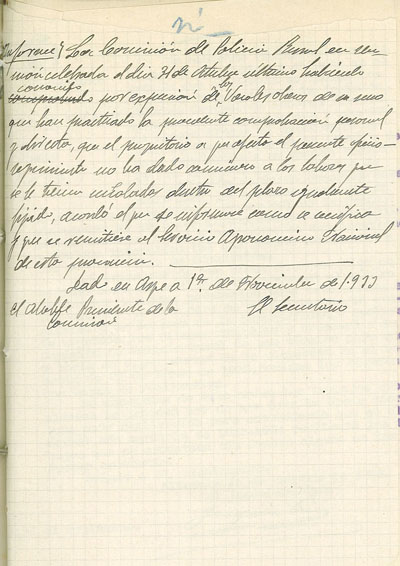 Informe} La Comisión de Policia Rural en reu-
nión celebrada el dia 31 de Octubre último habiendo
conocido
por expresion de los Vocales claves de su seno
que han practicado la procedente comprobacion personal
y directa, que el propietario a que afecta el presente quin-
requirimiento no ha dado comienzo a los labores que
se le tienen señaladas dentro del plazo igualmente
fijado, acordó el que se informase como se verifica
y que se remitiese al Servicio Agronomico Nacional
de esta provincia.
Dado en Aspe a 1º de Noviembre de 1.933
El Alcalde Presidente de la El Secretario
Comision